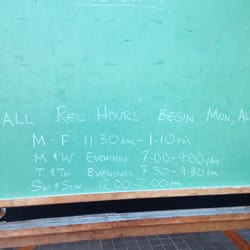 ALL REC HOURS BEGIN MON, AU
M - F 11:30am - 1:10pm
M & W EVENINGS 7:00 - 9:00pm
T & TH EVENINGS 7:30 - 9:30pm
SAT & SUN 12:00 - 2:00pm